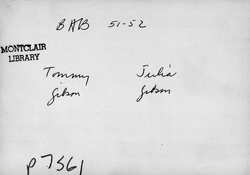 BAB 51-52
MONTCLAIR
LIBRARY
Tommy Julia
Gibson Gibson
P7561